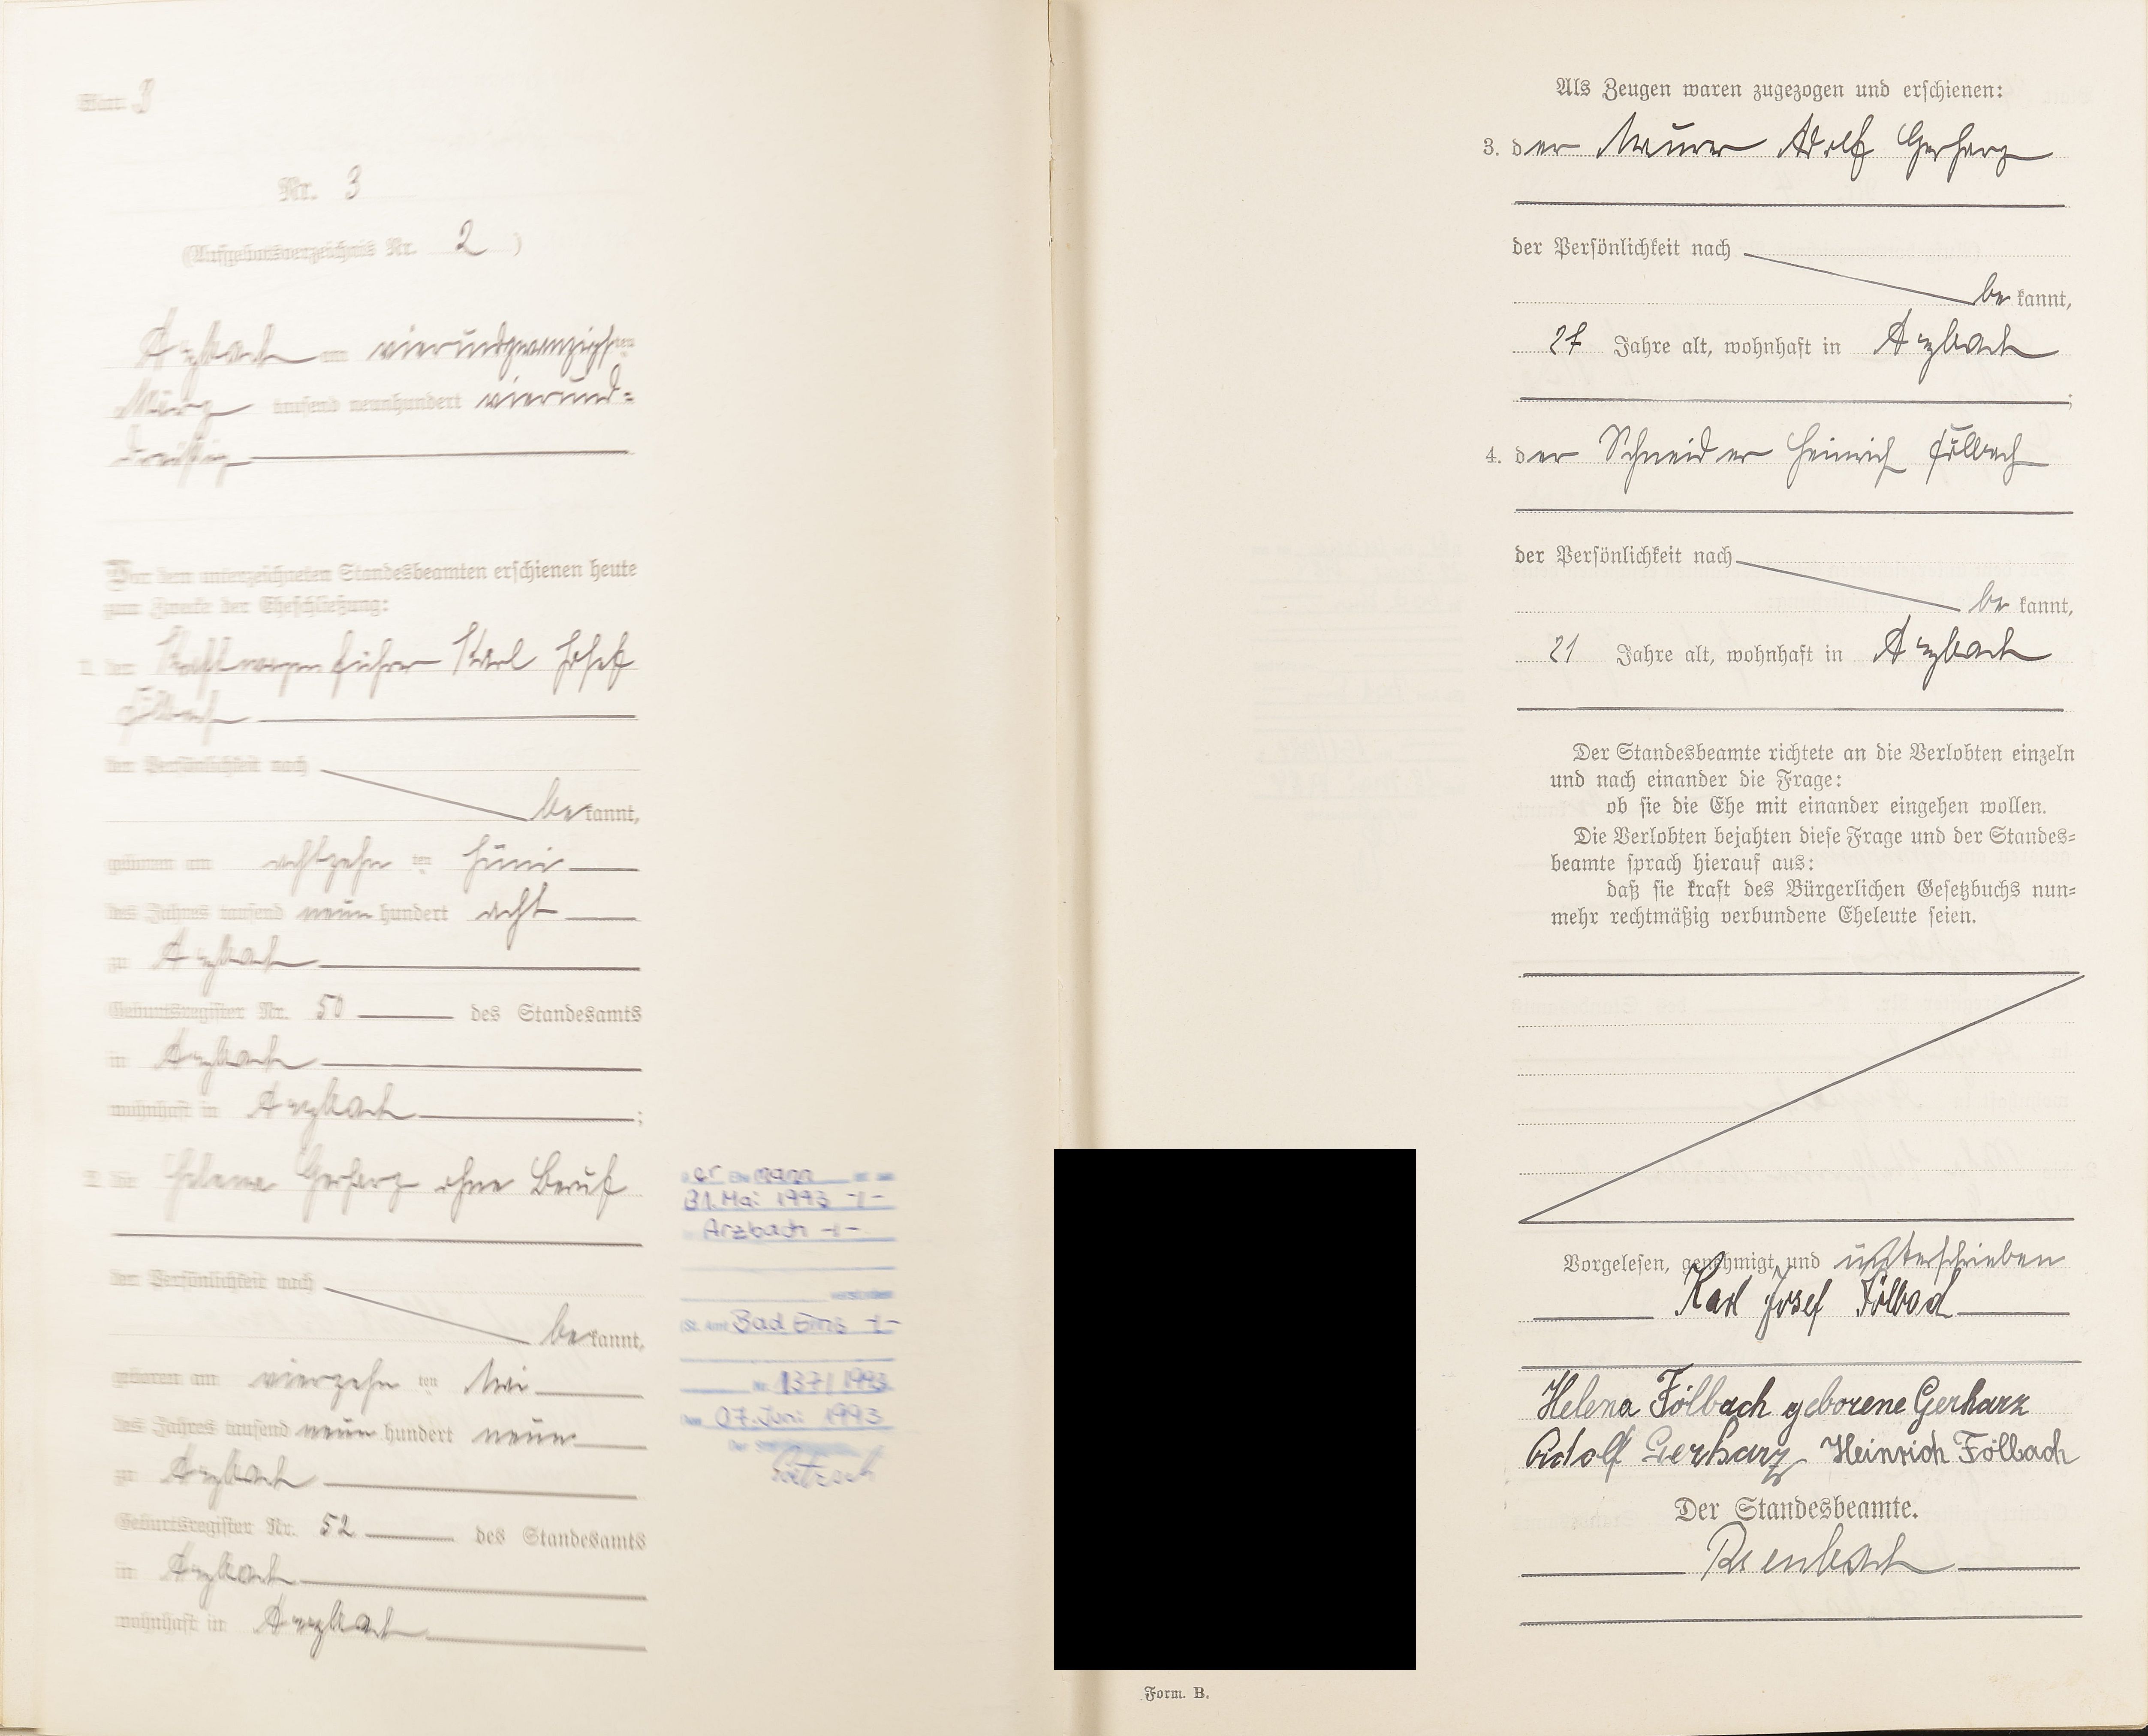 Nr. 3
Nr. 3
(Aufgebotsverzeichnis Nr. 2)
Arzbach am vierundzwanzigsten
März tausend neunhundert vierund=
dreißig
Vor dem unterzeichneten Standesbeamten erschienen heute
zum Zwecke der Eheschließung:
1. der Kraftwagenführer Karl Josef
Fölbach
der Persönlichkeit nach
bekannt,
geboren am achtzehnten Juni
des Jahres tausend neunhundert acht
zu Arzbach
Geburtsregister Nr. 50 des Standesamts
in Arzbach
wohnhaft in Arzbach;
2. die Helena Gerharz ohne Beruf
der Persönlichkeit nach
bekannt,
geboren am vierzehnten Mai
des Jahres tausend neunhundert neun
zu Arzbach
Geburtsregister Nr. 52 des Standesamts
in Arzbach
wohnhaft in Arzbach
Der Ehemann ist am
31. Mai 1993 -/-
Arzbach -/-
verstorben
(St. Amt Bad Ems -/-
Nr. 137/1993
Den 07. Juni 1993
Der
Als Zeugen waren zugezogen und erschienen:
3. der Maurer Adolf Gerharz
der Persönlichkeit nach
bekannt,
27 Jahre alt, wohnhaft in Arzbach
;
4. der Schneider Heinrich Fölbach
der Persönlichkeit nach
bekannt,
21 Jahre alt, wohnhaft in Arzbach
Der Standesbeamte richtete an die Verlobten einzeln
und nach einander die Frage:
ob sie die Ehe mit einander eingehen wollen.
Die Verlobten bejahten diese Frage und der Standes=
beamte sprach hierauf aus:
daß sie kraft des Bürgerlichen Gesetzbuchs nun=
mehr rechtmäßig verbundene Eheleute seien.
Vorgelesen, genehmigt und unterschrieben
Karl Josef Fölbach
Helena Fölbach geborene Gerharz
Adolf Gerharz Heinrich Fölbach
Der Standesbeamte.
Form. B.